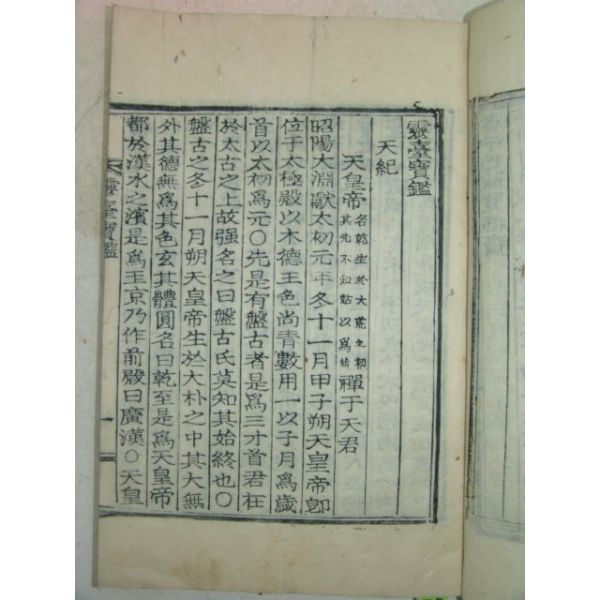 靈臺寶鑑
天紀
天皇帝 名乾生於大荒之初 其先不知姑以爲始 禪于天君
昭陽大淵獻太初元年冬十一月甲子朔天皇帝卽
位于太極殿以木德王色尚青數用一以子月爲歲
首以太初爲元〇先是有盤古者是爲三才首君在
於太古之上故强名之曰盤古氏莫知其始終也〇
盤古之冬十一月朔天皇帝生於大朴之中其大無
外其德無爲其色玄其體圓名曰乾至是爲天皇帝
都於漢水之濱是爲玉京乃作前殿曰廣漢〇天皇
靈臺寶鑑
一